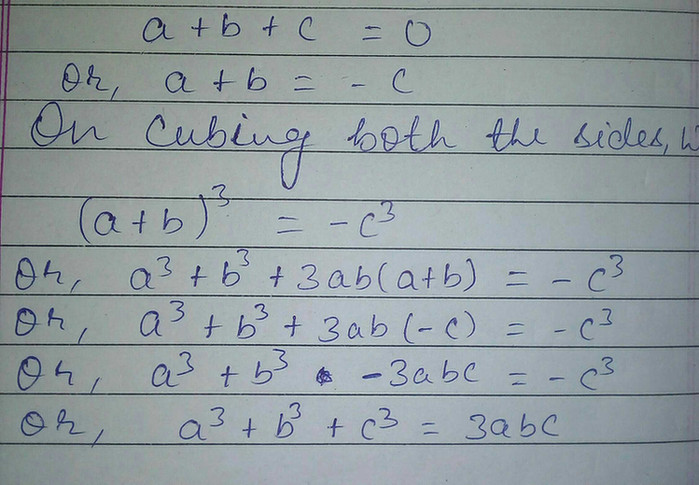 a + b + c = 0
Or, a + b = - c
On Cubing both the sides,
(a + b)³ = - c³
Or, a³ + b³ + 3ab(a+b) = - c³
Or, a³ + b³ + 3ab (-c) = - c³
Or, a³ + b³ - 3abc = - c³
Or, a³ + b³ + c³ = 3abc